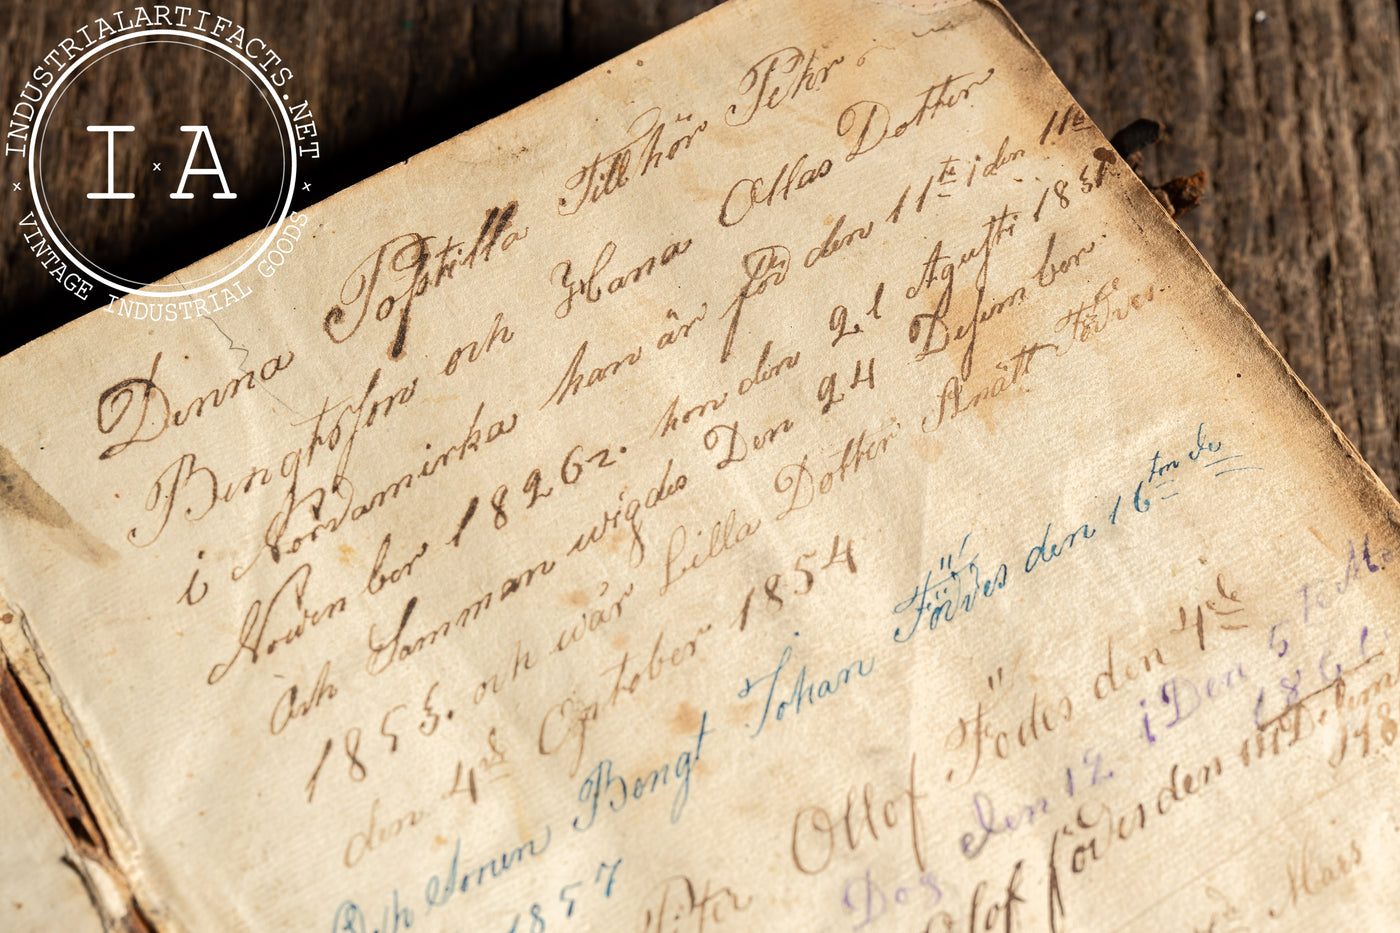 INDUSTRIALARTIFACTS.NET
I × A
VINTAGE INDUSTRIAL GOODS
Denna Postilla Till hör Pehr
Bengtsson och Hana Ollas Dotter
i Nordamirka han är föd den 11te i den 11te
Nowember 1826 hon den 21 Agusti 1831
Och Samman wigdes Den 24 Desember
1853. och wår Lilla Dotter Anätt Föddes
den 4de Ogtober 1854
Och Sonen Bengt Johan Föddes den 16ton de
1857
Peter Ollof Födes den 4de
Dog den 12 i Den 5te
1861
Olof föddes den Desem
Mars